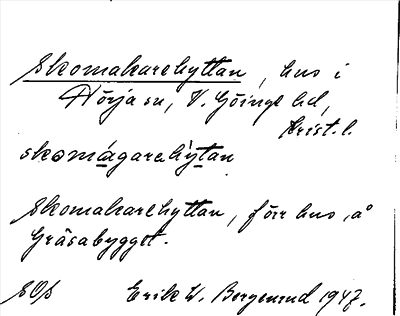 Skomakarehyttan, hus i
Nörja sn, V. Göinge hd,
Krist. l.
skomágarehỳtan
Skomakarehyttan, förr hus å
Gråsabygget.
SOS Erik W. Bergenrud 1947.